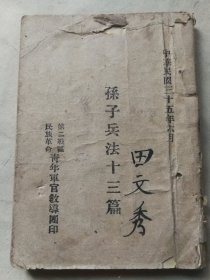 中華民國三十五年六月
孫子兵法十三篇
田文秀
第二戰區
民族革命
青年軍官教導團印